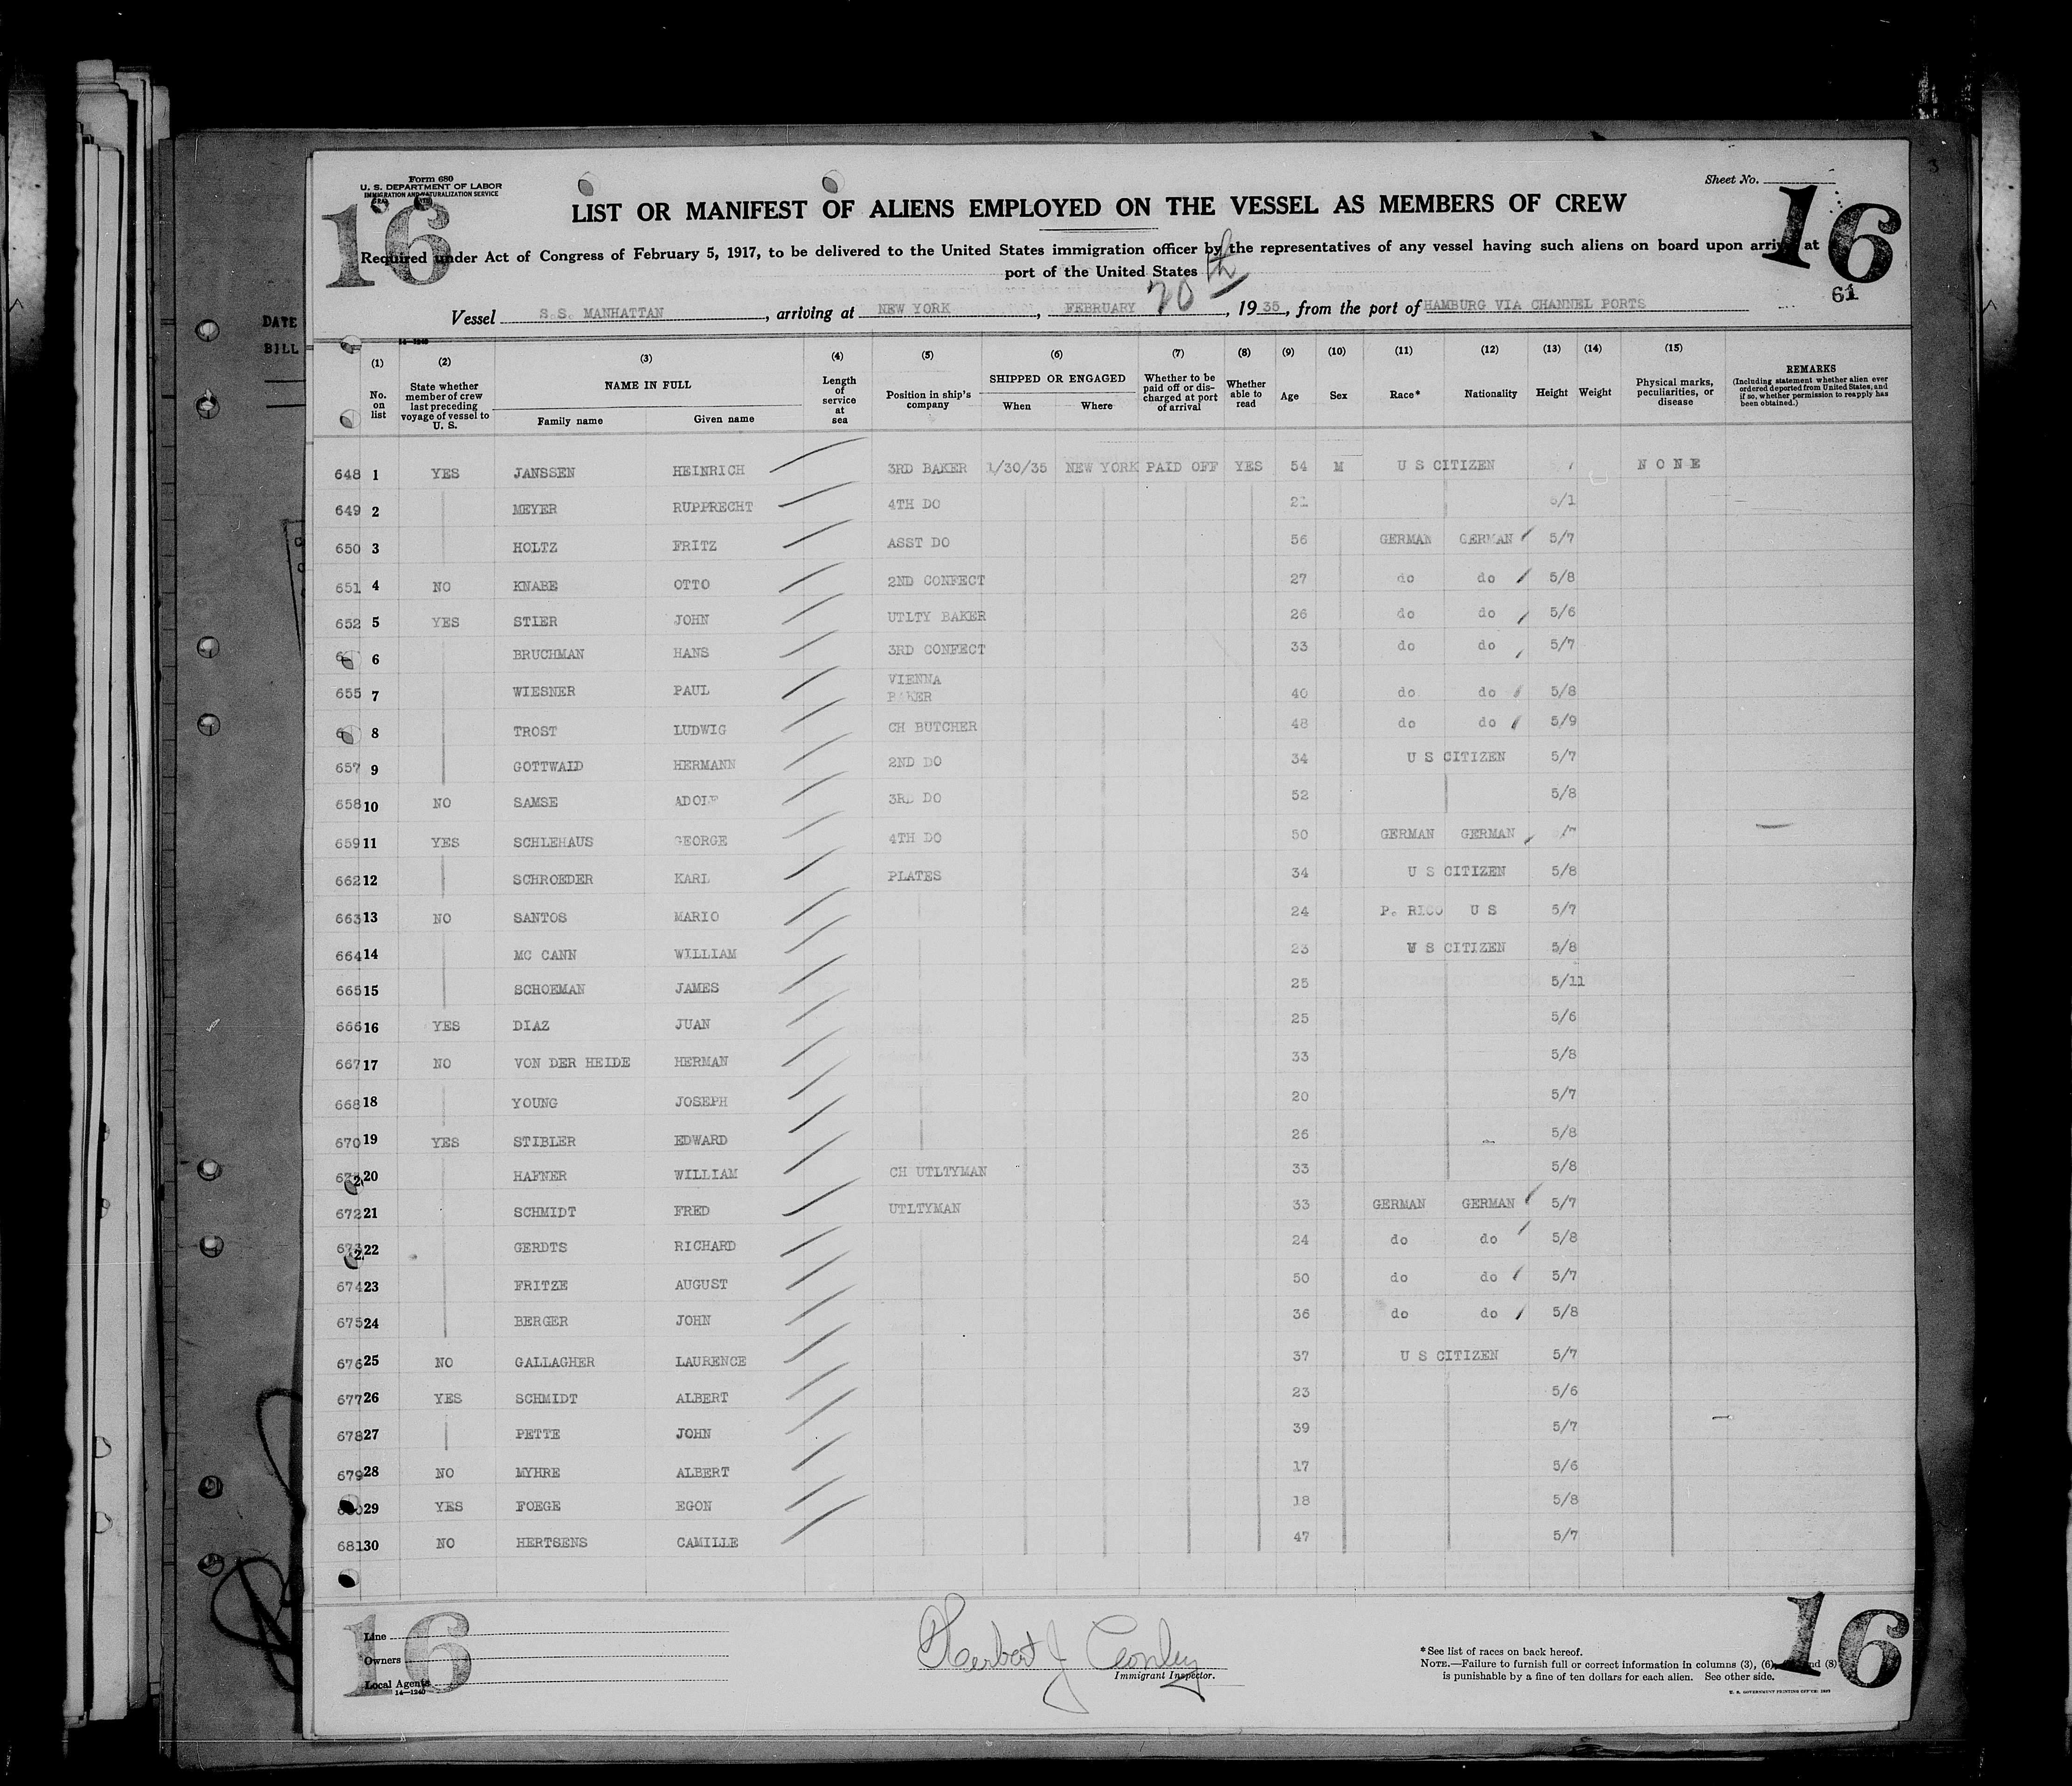 3
Form 680
U. S. DEPARTMENT OF LABOR
IMMIGRATION AND NATURALIZATION SERVICE
Sheet No.
16
16
LIST OR MANIFEST OF ALIENS EMPLOYED ON THE VESSEL AS MEMBERS OF CREW
Required under Act of Congress of February 5, 1917, to be delivered to the United States immigration officer by the representatives of any vessel having such aliens on board upon arrival at
port of the United States
61
Vessel S.S. MANHATTAN, arriving at NEW YORK, FEBRUARY 20th, 1935, from the port of HAMBURG VIA CHANNEL PORTS
DATE
BILL
14—1240
(1) (2) (3) (4) (5) (6) (7) (8) (9) (10) (11) (12) (13) (14) (15)
No. on list
State whether member of crew last preceding voyage of vessel to U. S.
NAME IN FULL
Family name Given name
Length of service at sea
Position in ship's company
SHIPPED OR ENGAGED
When Where
Whether to be paid off or discharged at port of arrival
Whether able to read
Age Sex Race* Nationality Height Weight
Physical marks, peculiarities, or disease
REMARKS
(Including statement whether alien ever ordered deported from United States, and if so, whether permission to reapply has been obtained.)
648 1 YES JANSSEN HEINRICH 3RD BAKER 1/30/35 NEW YORK PAID OFF YES 54 M U S CITIZEN NONE
649 2 MEYER RUPPRECHT 4TH DO 21 5/1
650 3 HOLTZ FRITZ ASST DO 56 GERMAN GERMAN 5/7
651 4 NO KNABE OTTO 2ND CONFECT 27 do do 5/8
652 5 YES STIER JOHN UTLTY BAKER 26 do do 5/6
6 BRUCHMAN HANS 3RD CONFECT 33 do do 5/7
655 7 WIESNER PAUL VIENNA BAKER 40 do do 5/8
8 TROST LUDWIG CH BUTCHER 48 do do 5/9
657 9 GOTTWALD HERMANN 2ND DO 34 U S CITIZEN 5/7
658 10 NO SAMSE ADOLF 3RD DO 52 5/8
659 11 YES SCHLEHAUS GEORGE 4TH DO 50 GERMAN GERMAN
662 12 SCHROEDER KARL PLATES 34 U S CITIZEN 5/8
663 13 NO SANTOS MARIO 24 P. RICO U S 5/7
664 14 MC CANN WILLIAM 23 U S CITIZEN 5/8
665 15 SCHOEMAN JAMES 25 5/11
666 16 YES DIAZ JUAN 25 5/6
667 17 NO VON DER HEIDE HERMAN 33 5/8
668 18 YOUNG JOSEPH 20 5/7
670 19 YES STIBLER EDWARD 26 5/8
20 HAFNER WILLIAM CH UTLTYMAN 33 5/8
672 21 SCHMIDT FRED UTLTYMAN 33 GERMAN GERMAN 5/7
673 22 GERDTS RICHARD 24 do do 5/8
674 23 FRITZE AUGUST 50 do do 5/7
675 24 BERGER JOHN 36 do do 5/8
676 25 NO GALLAGHER LAURENCE 37 U S CITIZEN 5/7
677 26 YES SCHMIDT ALBERT 23 5/6
678 27 PETTE JOHN 39 5/7
679 28 NO MYHRE ALBERT 17 5/6
29 YES FOEGE EGON 18 5/8
681 30 NO HERTSENS CAMILLE 47 5/7
16
16
Line
Owners
Local Agents
14—1240
Herbert J Conley
Immigrant Inspector.
*See list of races on back hereof.
NOTE.—Failure to furnish full or correct information in columns (3), (6), and (8)
is punishable by a fine of ten dollars for each alien. See other side.
U. S. GOVERNMENT PRINTING OFFICE